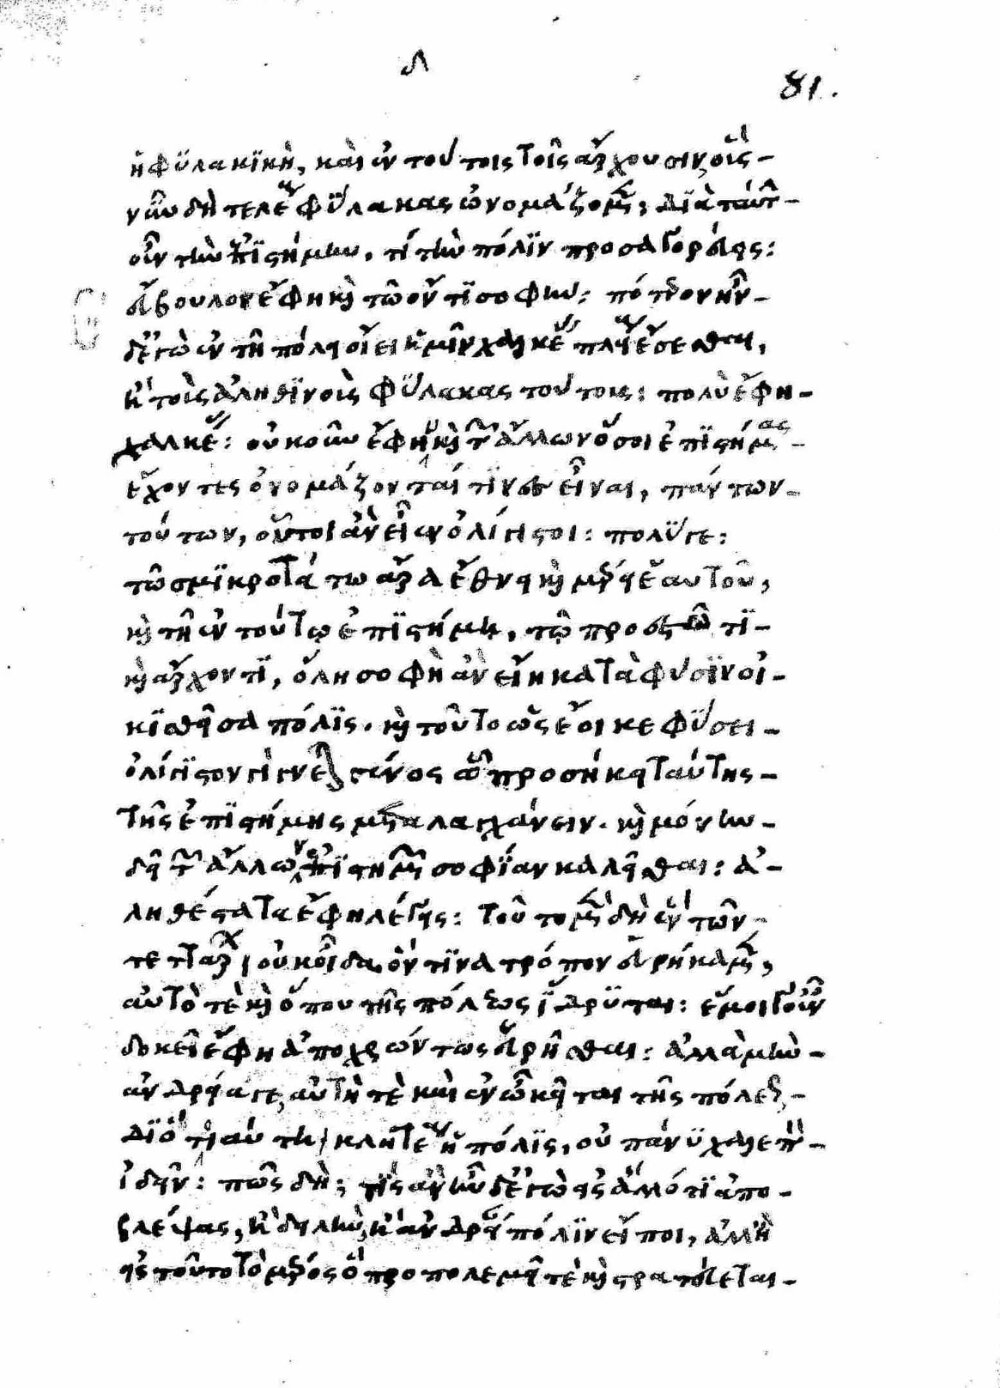 δ
81.
ἡ φϋλακϊκὴ, καὶ ἐν τούτοις τοῖς ἄρχουσιν οὓς -
νῦν δὴ τελέους φϋλακας ὠνομάζομεν; Διὰ ταύτην -
οὖν τὴν ἐπϊστήμην, τί τὴν πόλϊν προσαγορεύεις:
εὔβουλον ἔφη καὶ τῷ ὄντϊ σοφήν: πότερον οὖν -
δ' ἐγὼ ἐν τῇ πόλει οἴει ἡμῖν χαλκέας πλείους ἔσεσθαι,
ἢ τοὺς ἀληθϊνοὺς φϋλακας τούτους: πολὺ ἔφη -
χαλκέας: οὐκοῦν ἔφην καὶ τῶν ἄλλων ὅσοι ἐπϊστήμας -
ἔχοντες ὀνομάζονταί τϊνες εἶναι, πάντων -
τούτων, οὗτοι ἂν εἶεν ὀλίγιστοι: πολϋ γε:
τῷ σμϊκροτάτῳ ἄρα ἔθνει καὶ μέρει ἑαυτοῦ,
καὶ τῇ ἐν τούτῳ ἐπϊστήμῃ, τῷ προεστῶτϊ -
καὶ ἄρχοντϊ, ὅλη σοφὴ ἂν εἴη κατὰ φυσϊν οἰ -
κϊσθεῖσα πόλϊς. καὶ τοῦτο ὡς ἔοικε φϋσει -
ὀλίγϊστον γίγνεται γένος ᾧ προσήκει ταύτης -
τῆς ἐπϊστήμης μεταλαγχάνειν. ἣν μόνην -
δεῖ τῶν ἄλλων ἐπϊστημῶν σοφΐαν καλεῖσθαι: ἀ -
ληθέστατα ἔφη λέγεις: τοῦτο μὲν δὴ ἓν τῶν -
τεττάρων οὐκ οἶδα ὅντϊνα τρόπον εὑρήκαμεν,
αὐτό τε καὶ ὅπου τῆς πόλεως ἵδρϋται: ἐμοὶ γοῦν
δοκεῖ ἔφη ἀποχρώντως εὑρῆσθαι: ἀλλὰ μὴν -
ἀνδρεία γε αὐτή τε καὶ ἐν ᾧ κεῖται τῆς πόλεως -
δϊ' ὃ τοιαύτη κλητέα ἡ πόλϊς, οὐ πάνϋ χαλεπὸν -
ἰδεῖν: πῶς δή; τΐς ἂν ἦν δ' ἐγὼ εἰς ἄλλό τϊ ἀπο -
βλέψας, ἢ δειλὴν ἢ ἀνδρείαν πόλϊν εἴποι, ἀλλ' ἢ
εἰς τοῦτο τὸ μέρος ὃ προπολεμεῖ τε καὶ στρατεύεται -